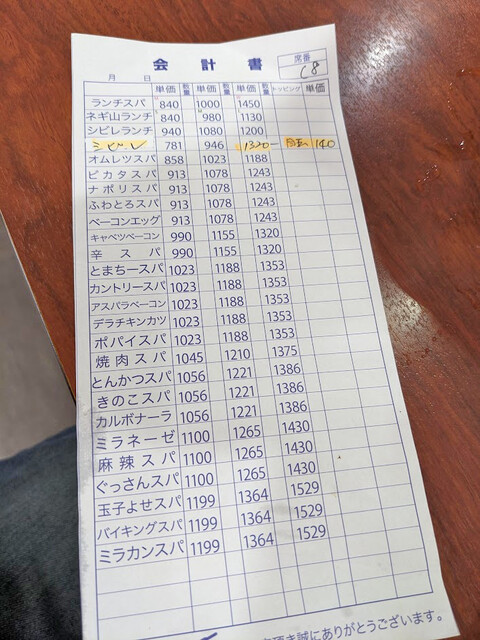 会計書
席番
C8
月 日
単価 数量 単価 数量 単価 数量 トッピング 単価
ランチスパ 840 1000 1450
ネギ山ランチ 840 980 1130
シビレランチ 940 1080 1200
シビレ 781 946 1320- 140
オムレツスパ 858 1023 1188
ピカタスパ 913 1078 1243
ナポリスパ 913 1078 1243
ふわとろスパ 913 1078 1243
ベーコンエッグ 913 1078 1243
キャベツベーコン 990 1155 1320
辛スパ 990 1155 1320
とまちースパ 1023 1188 1353
カントリースパ 1023 1188 1353
アスパラベーコン 1023 1188 1353
デラチキンカツ 1023 1188 1353
ポパイスパ 1023 1188 1353
焼肉スパ 1045 1210 1375
とんかつスパ 1056 1221 1386
きのこスパ 1056 1221 1386
カルボナーラ 1056 1221 1386
ミラネーゼ 1100 1265 1430
麻辣スパ 1100 1265 1430
ぐっさんスパ 1100 1265 1430
玉子よせスパ 1199 1364 1529
バイキングスパ 1199 1364 1529
ミラカンスパ 1199 1364 1529
頂き誠にありがとうございます。